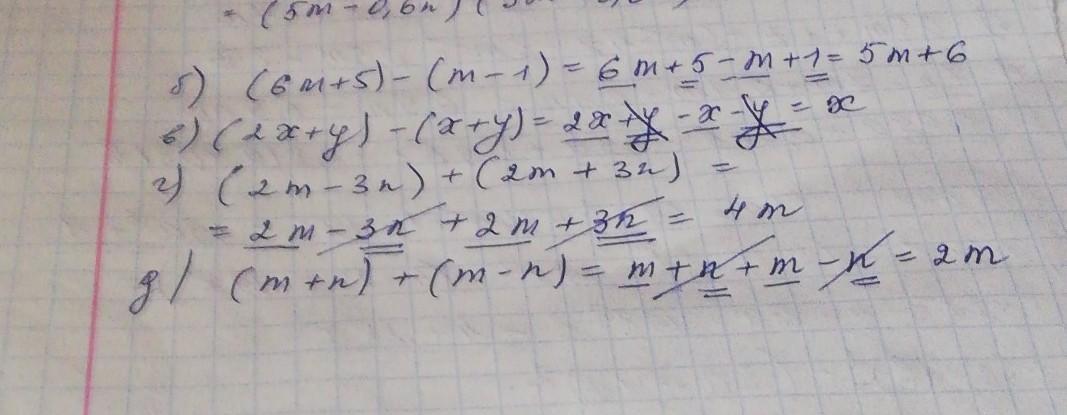 = (5m - 0,6n) (
б) (6m+5) - (m - 1) = 6m + 5 - m + 1 = 5m + 6
в) (2x+y) - (x+y) = 2x + y - x - y = x
г) (2m - 3n) + (2m + 3n) =
= 2m - 3n + 2m + 3n = 4m
д) (m+n) + (m - n) = m + n + m - n = 2m